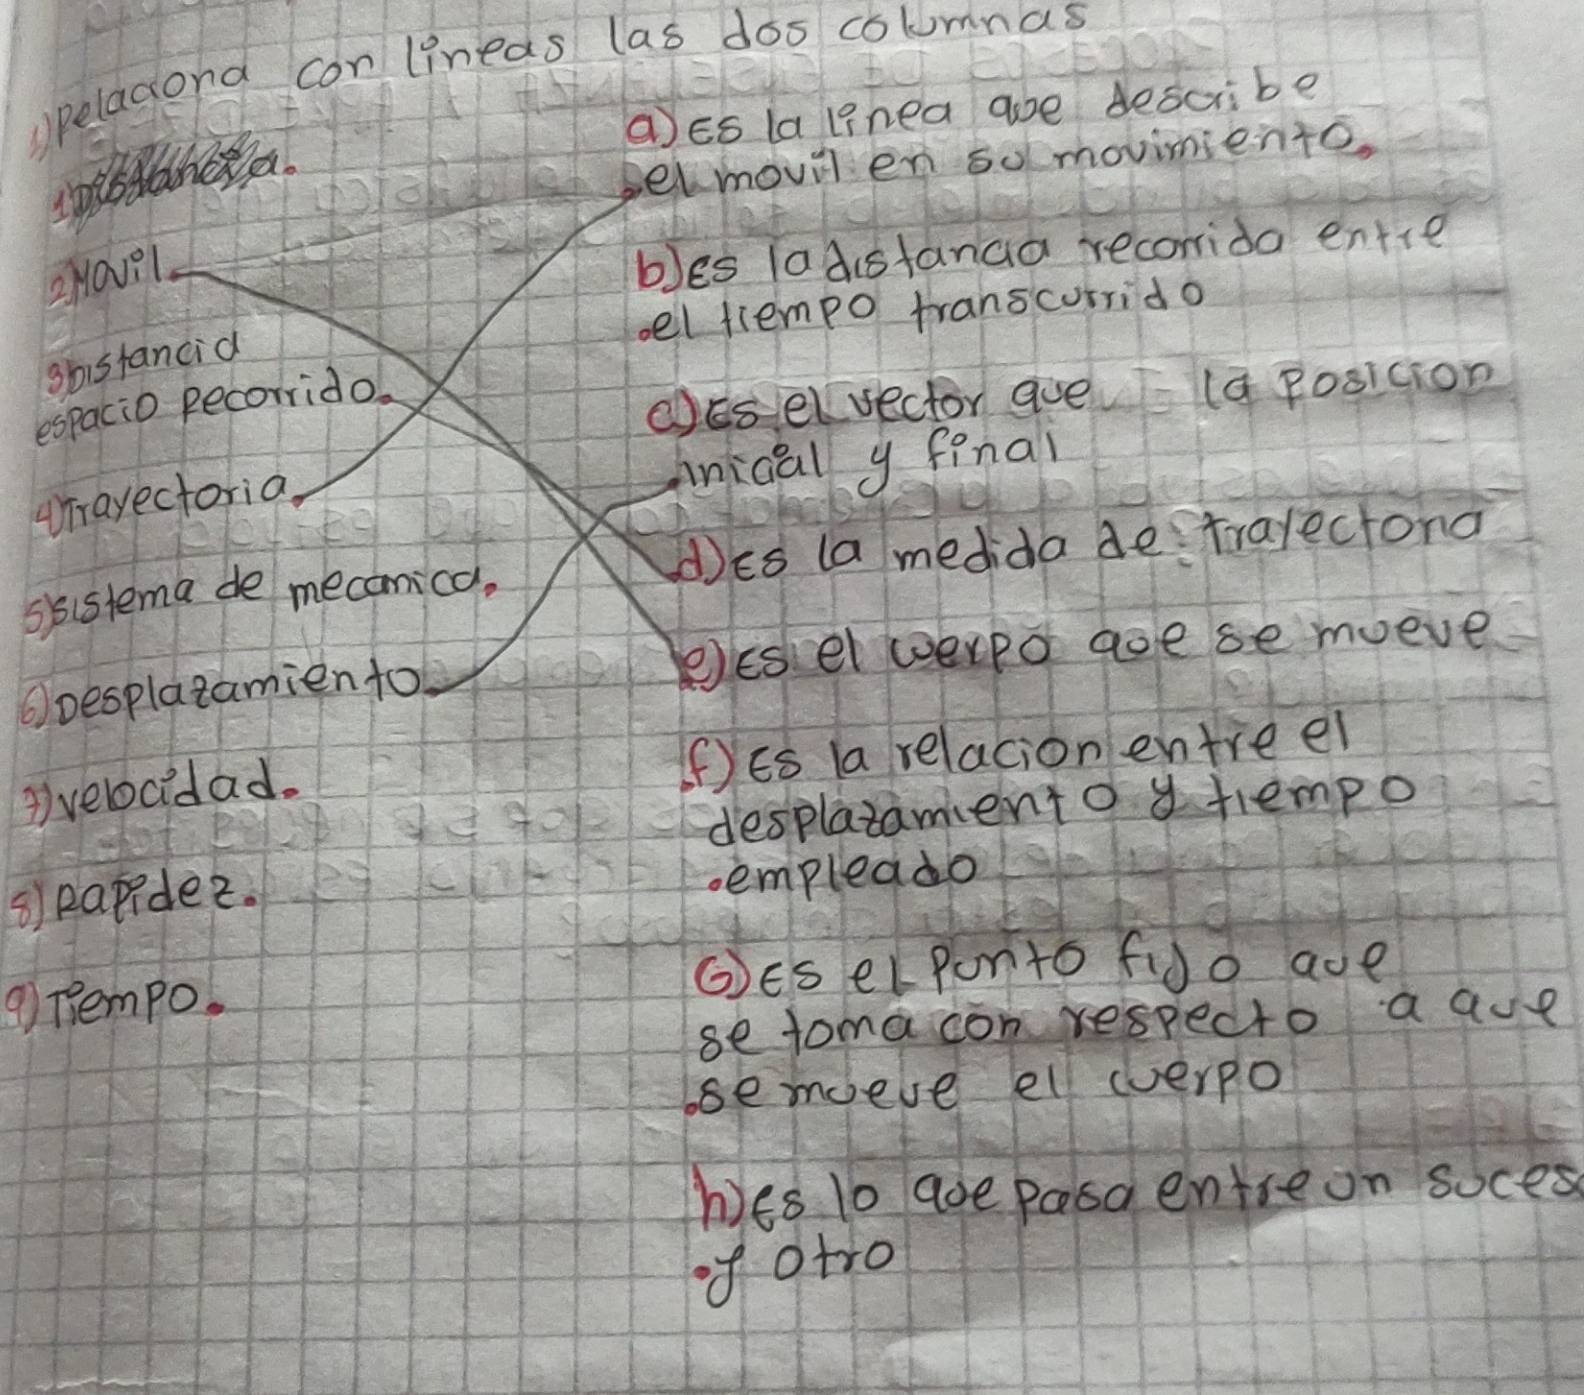 1) Relaciona con líneas las dos columnas
2) Movil.
3) Distancia
espacio Recorrido.
4) Trayectoria.
5) sistema de mecanica.
6) Desplazamiento.
7) velocidad.
8) Rapidez.
9) Tiempo.
a) Es la linea que describe
.el movil en su movimiento.
b) es la distancia recorrida entre
.el tiempo transcurrido
c) Es el vector que la Posicion
.inicial y final
d) Es la medida de trayectoria
e) Es el cuerpo que se mueve
f) Es la relacion entre el
desplazamiento y tiempo
.empleado
G) Es el Punto fijo que
se toma con respecto a que
.se mueve el cuerpo
h) Es lo que pasa entre un suces
.y otro